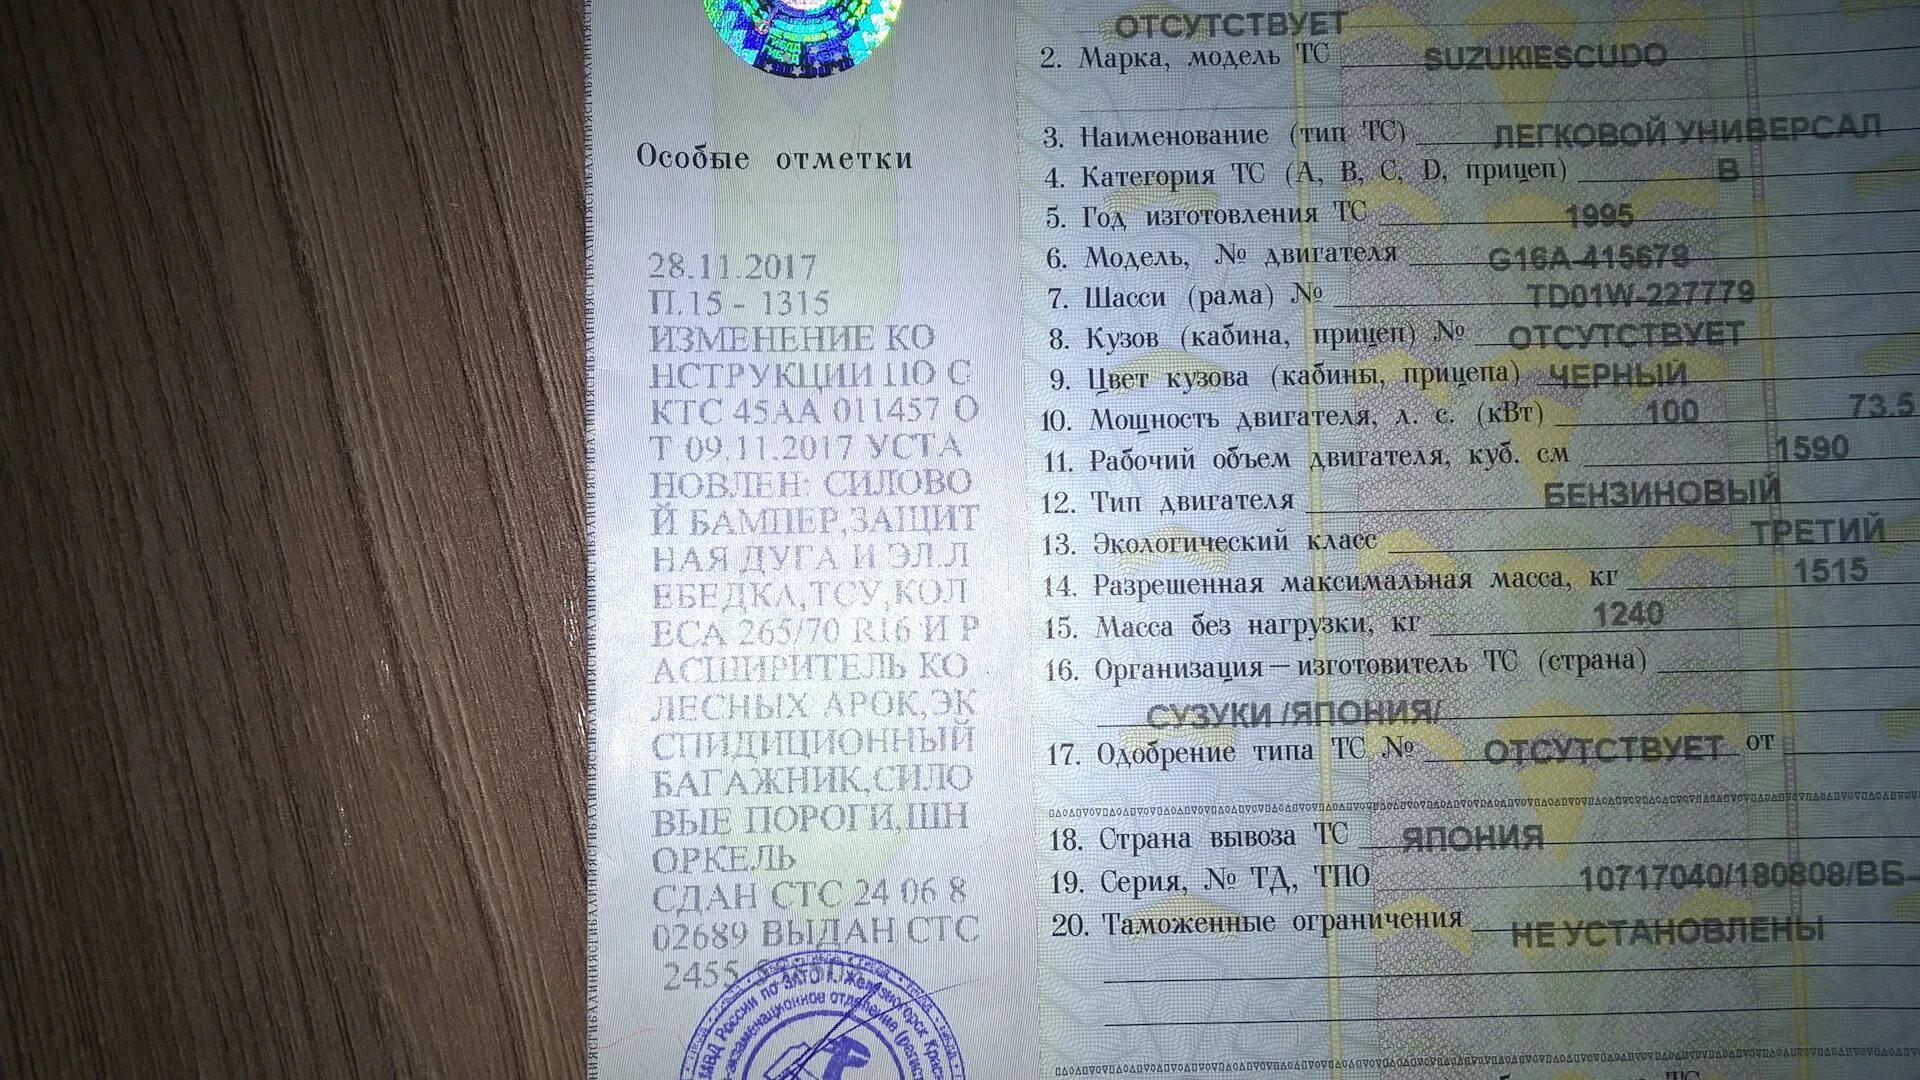 Особые отметки
28.11.2017
П.15 - 1315
ИЗМЕНЕНИЕ КО
НСТРУКЦИИ ПО С
КТС 45АА 011457 О
Т 09.11.2017 УСТА
НОВЛЕН: СИЛОВО
Й БАМПЕР,ЗАЩИТ
НАЯ ДУГА И ЭЛ.Л
ЕБЕДКА,ТСУ,КОЛ
ЕСА 265/70 R16 И Р
АСШИРИТЕЛЬ КО
ЛЕСНЫХ АРОК,ЭК
СПИДИЦИОННЫЙ
БАГАЖНИК,СИЛО
ВЫЕ ПОРОГИ,ШН
ОРКЕЛЬ
СДАН СТС 24 06 8
02689 ВЫДАН СТС
2455
МВД России по ЗАТО г. Железногорск
экзаменационное отделение
ОТСУТСТВУЕТ
2. Марка, модель ТС SUZUKIESCUDO
3. Наименование (тип ТС) ЛЕГКОВОЙ УНИВЕРСАЛ
4. Категория ТС (А, В, С, D, прицеп) В
5. Год изготовления ТС 1995
6. Модель, № двигателя G16A-415679
7. Шасси (рама) № TD01W-227779
8. Кузов (кабина, прицеп) № ОТСУТСТВУЕТ
9. Цвет кузова (кабины, прицепа) ЧЕРНЫЙ
10. Мощность двигателя, л. с. (кВт) 100 73.5
11. Рабочий объем двигателя, куб. см 1590
12. Тип двигателя БЕНЗИНОВЫЙ
13. Экологический класс ТРЕТИЙ
14. Разрешенная максимальная масса, кг 1515
15. Масса без нагрузки, кг 1240
16. Организация—изготовитель ТС (страна)
СУЗУКИ /ЯПОНИЯ/
17. Одобрение типа ТС № ОТСУТСТВУЕТ от
18. Страна вывоза ТС ЯПОНИЯ
19. Серия, № ТД, ТПО 10717040/180808/ВБ-
20. Таможенные ограничения НЕ УСТАНОВЛЕНЫ